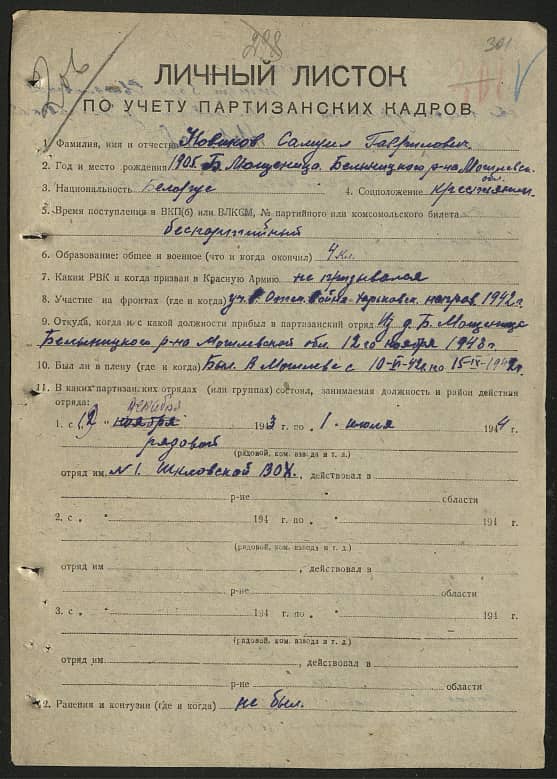 206
288
301
ЛИЧНЫЙ ЛИСТОК
ПО УЧЕТУ ПАРТИЗАНСКИХ КАДРОВ
1. Фамилия, имя и отчество Новиков Самуил Гаврилович
2. Год и место рождения 1905 Б Мощеница Белыницкого р-на Могилевск. обл.
3. Национальность Белорус 4. Соцположение крестьянин.
5. Время поступления в ВКП(б) или ВЛКСМ, № партийного или комсомольского билета
беспартийный
6. Образование: общее и военное (что и когда окончил) 4 кл.
7. Каким РВК и когда призван в Красную Армию не призывался
8. Участие на фронтах (где и когда) уч. Отеч. война 1942 г.
9. Откуда, когда и с какой должности прибыл в партизанский отряд Из д. Б. Мощеница
Белыницкого р-на Могилевской обл. 12го ноября 1943 г.
10. Был ли в плену (где и когда) Был в Могилеве с 10-VI-42 г. по 15-IX-1942 г.
11. В каких партизанских отрядах (или группах) состоял, занимаемая должность и район действия
отряда:
декабря
1. с 12 " ноября 1943 г. по 1 - июля 1944 г.
рядовой
(рядовой, ком. взвода и т. д.)
отряд им. №1. Шкловской ВОГ., действовал в
р-не области
2. с „ " 194 г. по „ " 194 г.
(рядовой, ком. взвода и т. д.)
отряд им , действовал в
р-не области
3. с „ " 194 г. по „ " 194 г.
(рядовой, ком. взвода и т. д.)
отряд им , действовал в
р-не области
12. Ранения и контузии (где и когда) не был.